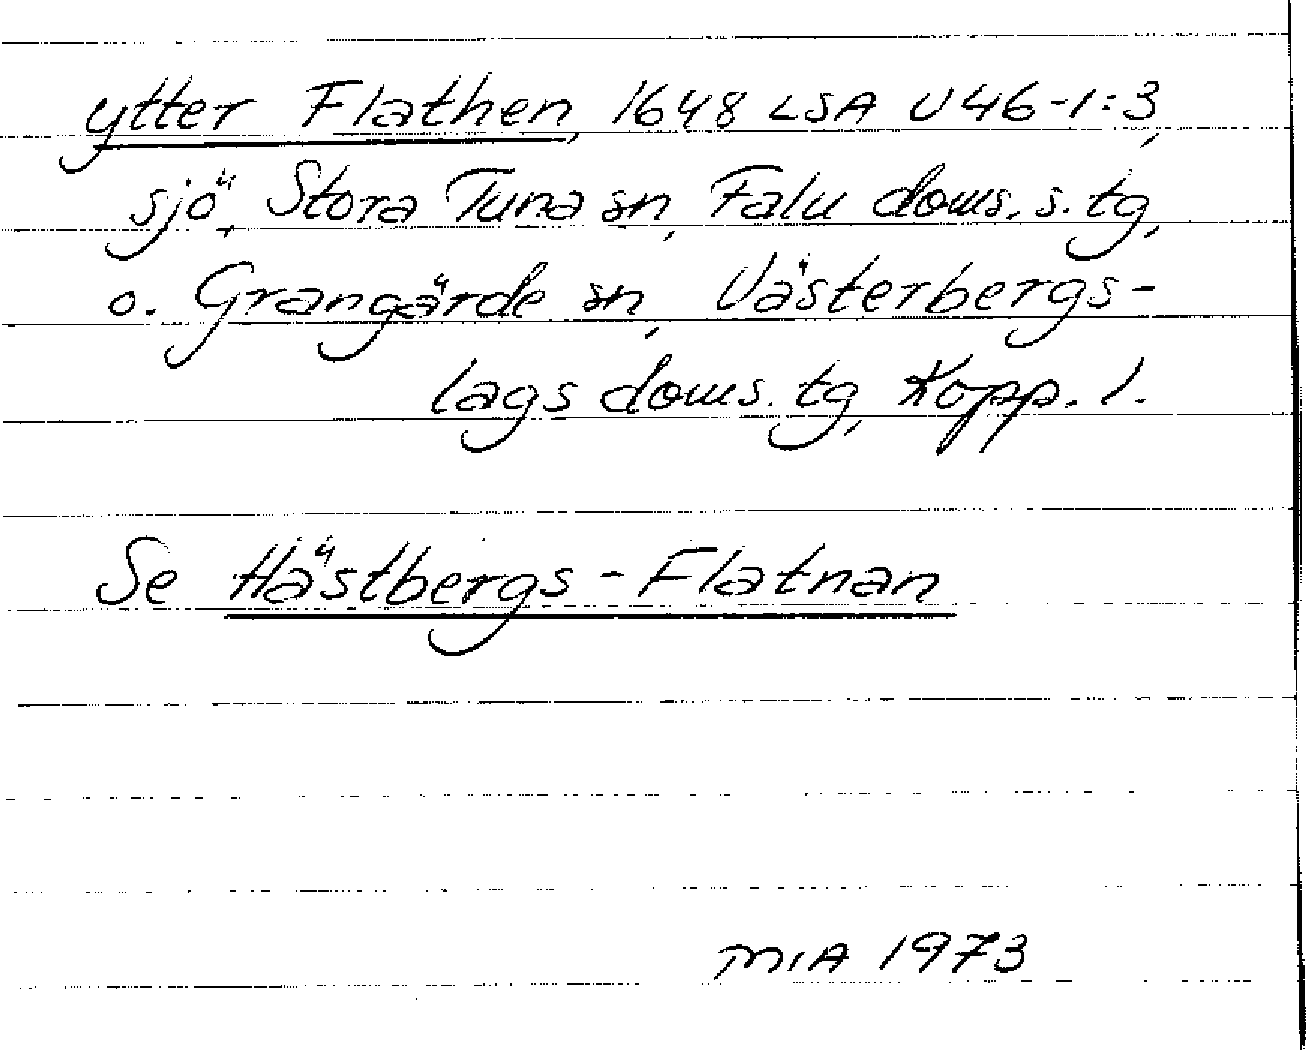 ytter Flathen, 1648 LSA U46-1:3,
sjö, Stora Tuna sn, Falu doms. s. tg,
o. Grangärde sn, Västerbergs-
lags doms. tg, Kopp. l.
Se Hästbergs-Flatnan
MIA 1973